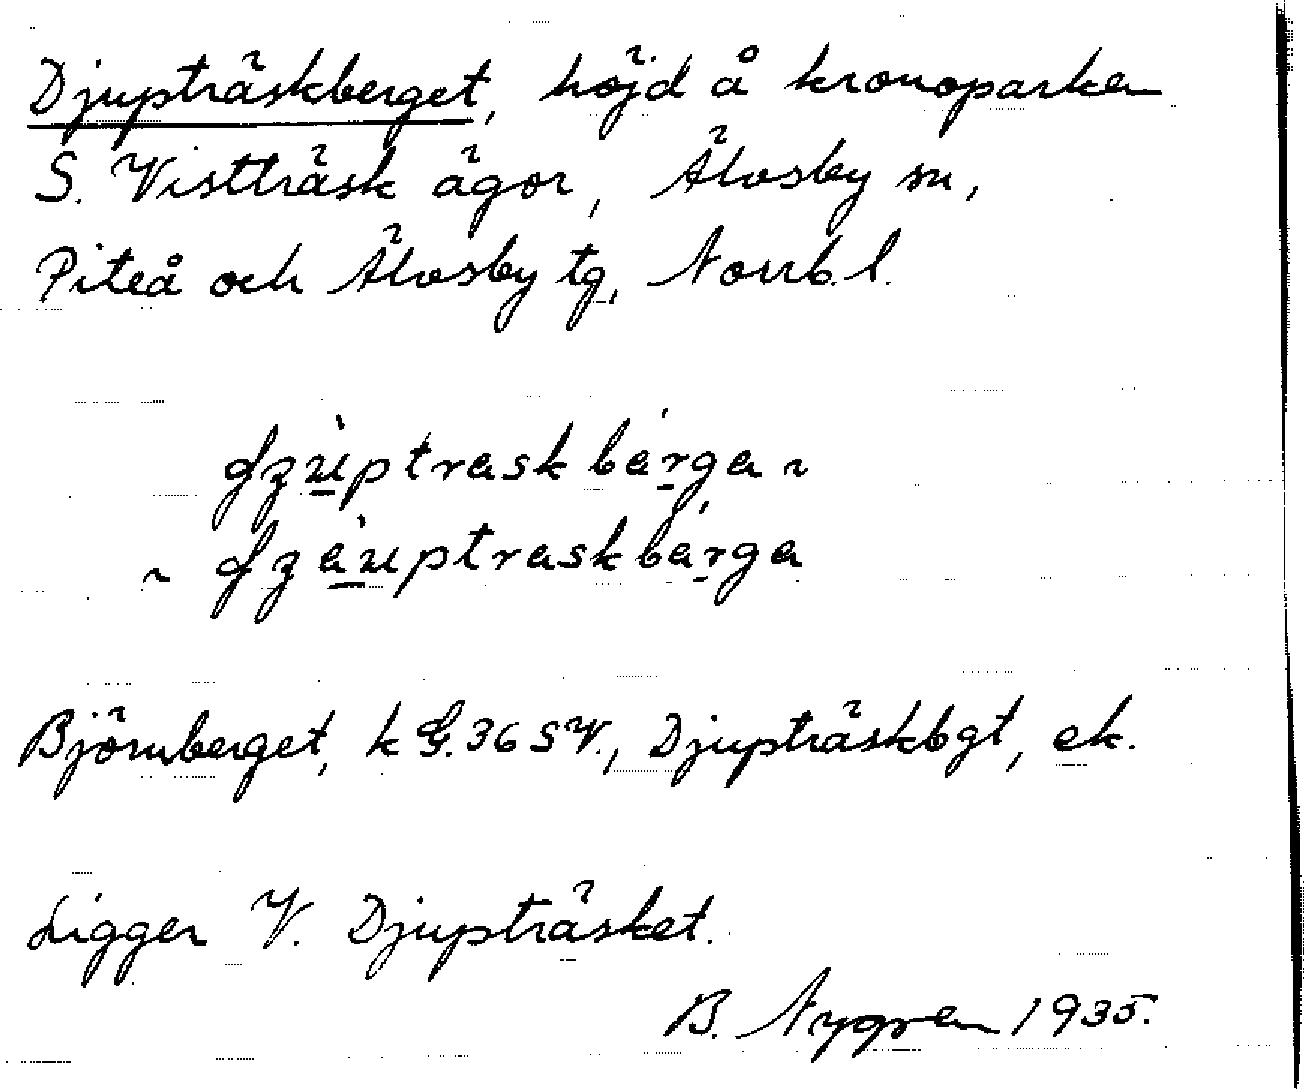 Djupträskberget, höjd å kronoparken
S. Vistträsk ägor, Älvsby sn,
Piteå och Älvsby tg, Norrb. l.
ʤù̲ptraskbár̲ga ~
~ ʤa̲ù̲ptraskbár̲ga
Björnberget, k G. 36 SV., Djupträskbgt, ek.
Ligger V. Djupträsket.
B. Nygren 1935.